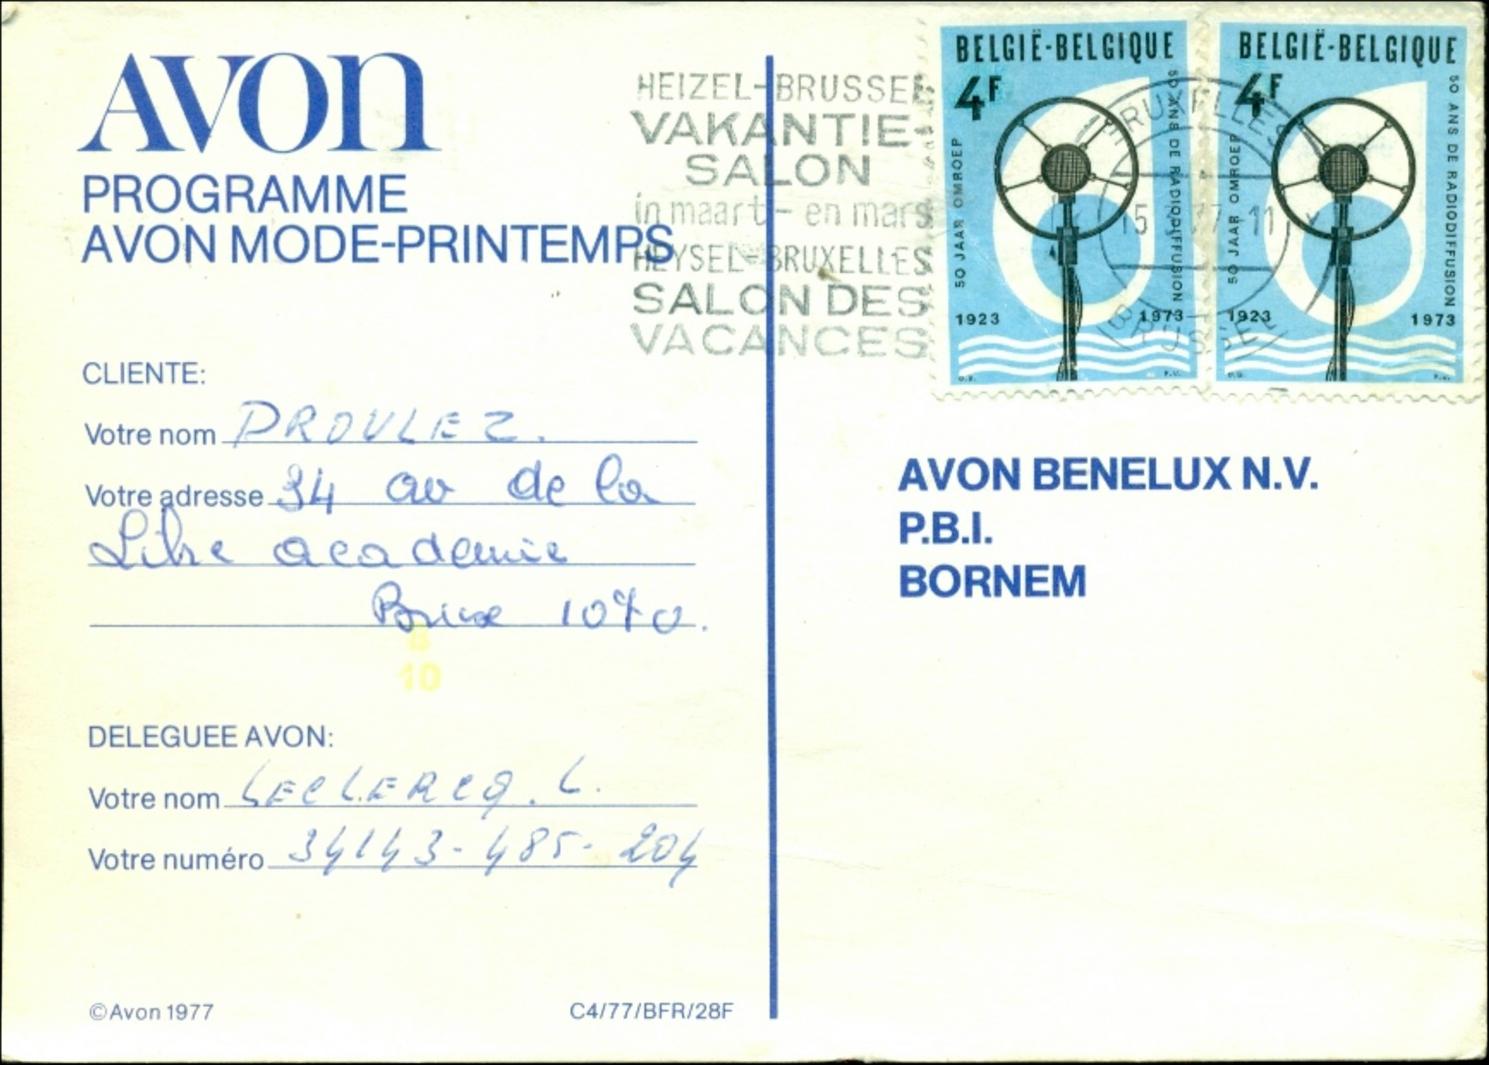 AVON
PROGRAMME
AVON MODE-PRINTEMPS
HEIZEL-BRUSSEL
VAKANTIE-
SALON
in maart - en mars
HEYSEL-BRUXELLES
SALON DES
VACANCES
BELGIË-BELGIQUE
4F
50 JAAR OMROEP
50 ANS DE RADIODIFFUSION
1923 1973
BELGIË-BELGIQUE
4F
50 JAAR OMROEP
50 ANS DE RADIODIFFUSION
1923 1973
BRUXELLES
15 77 11
BRUSSEL
CLIENTE:
Votre nom PROULEZ.
Votre adresse 34 av de la
Libre academie
Brux 1070.
8
10
DELEGUEE AVON:
Votre nom LECLERCQ. L.
Votre numéro 34143-485-204
©Avon 1977
C4/77/BFR/28F
AVON BENELUX N.V.
P.B.I.
BORNEM